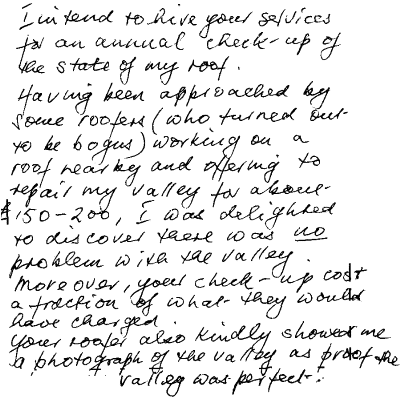 I intend to hire your services
for an annual check-up of
the state of my roof.
Having been approached by
some roofers (who turned out
to be bogus) working on a
roof nearby and offering to
repair my valley for about
$150-200, I was delighted
to discover there was no
problem with the valley.
Moreover, your check-up cost
a fraction of what they would
have charged.
Your roofer also kindly showed me
a photograph of the valley as proof the
valley was perfect.